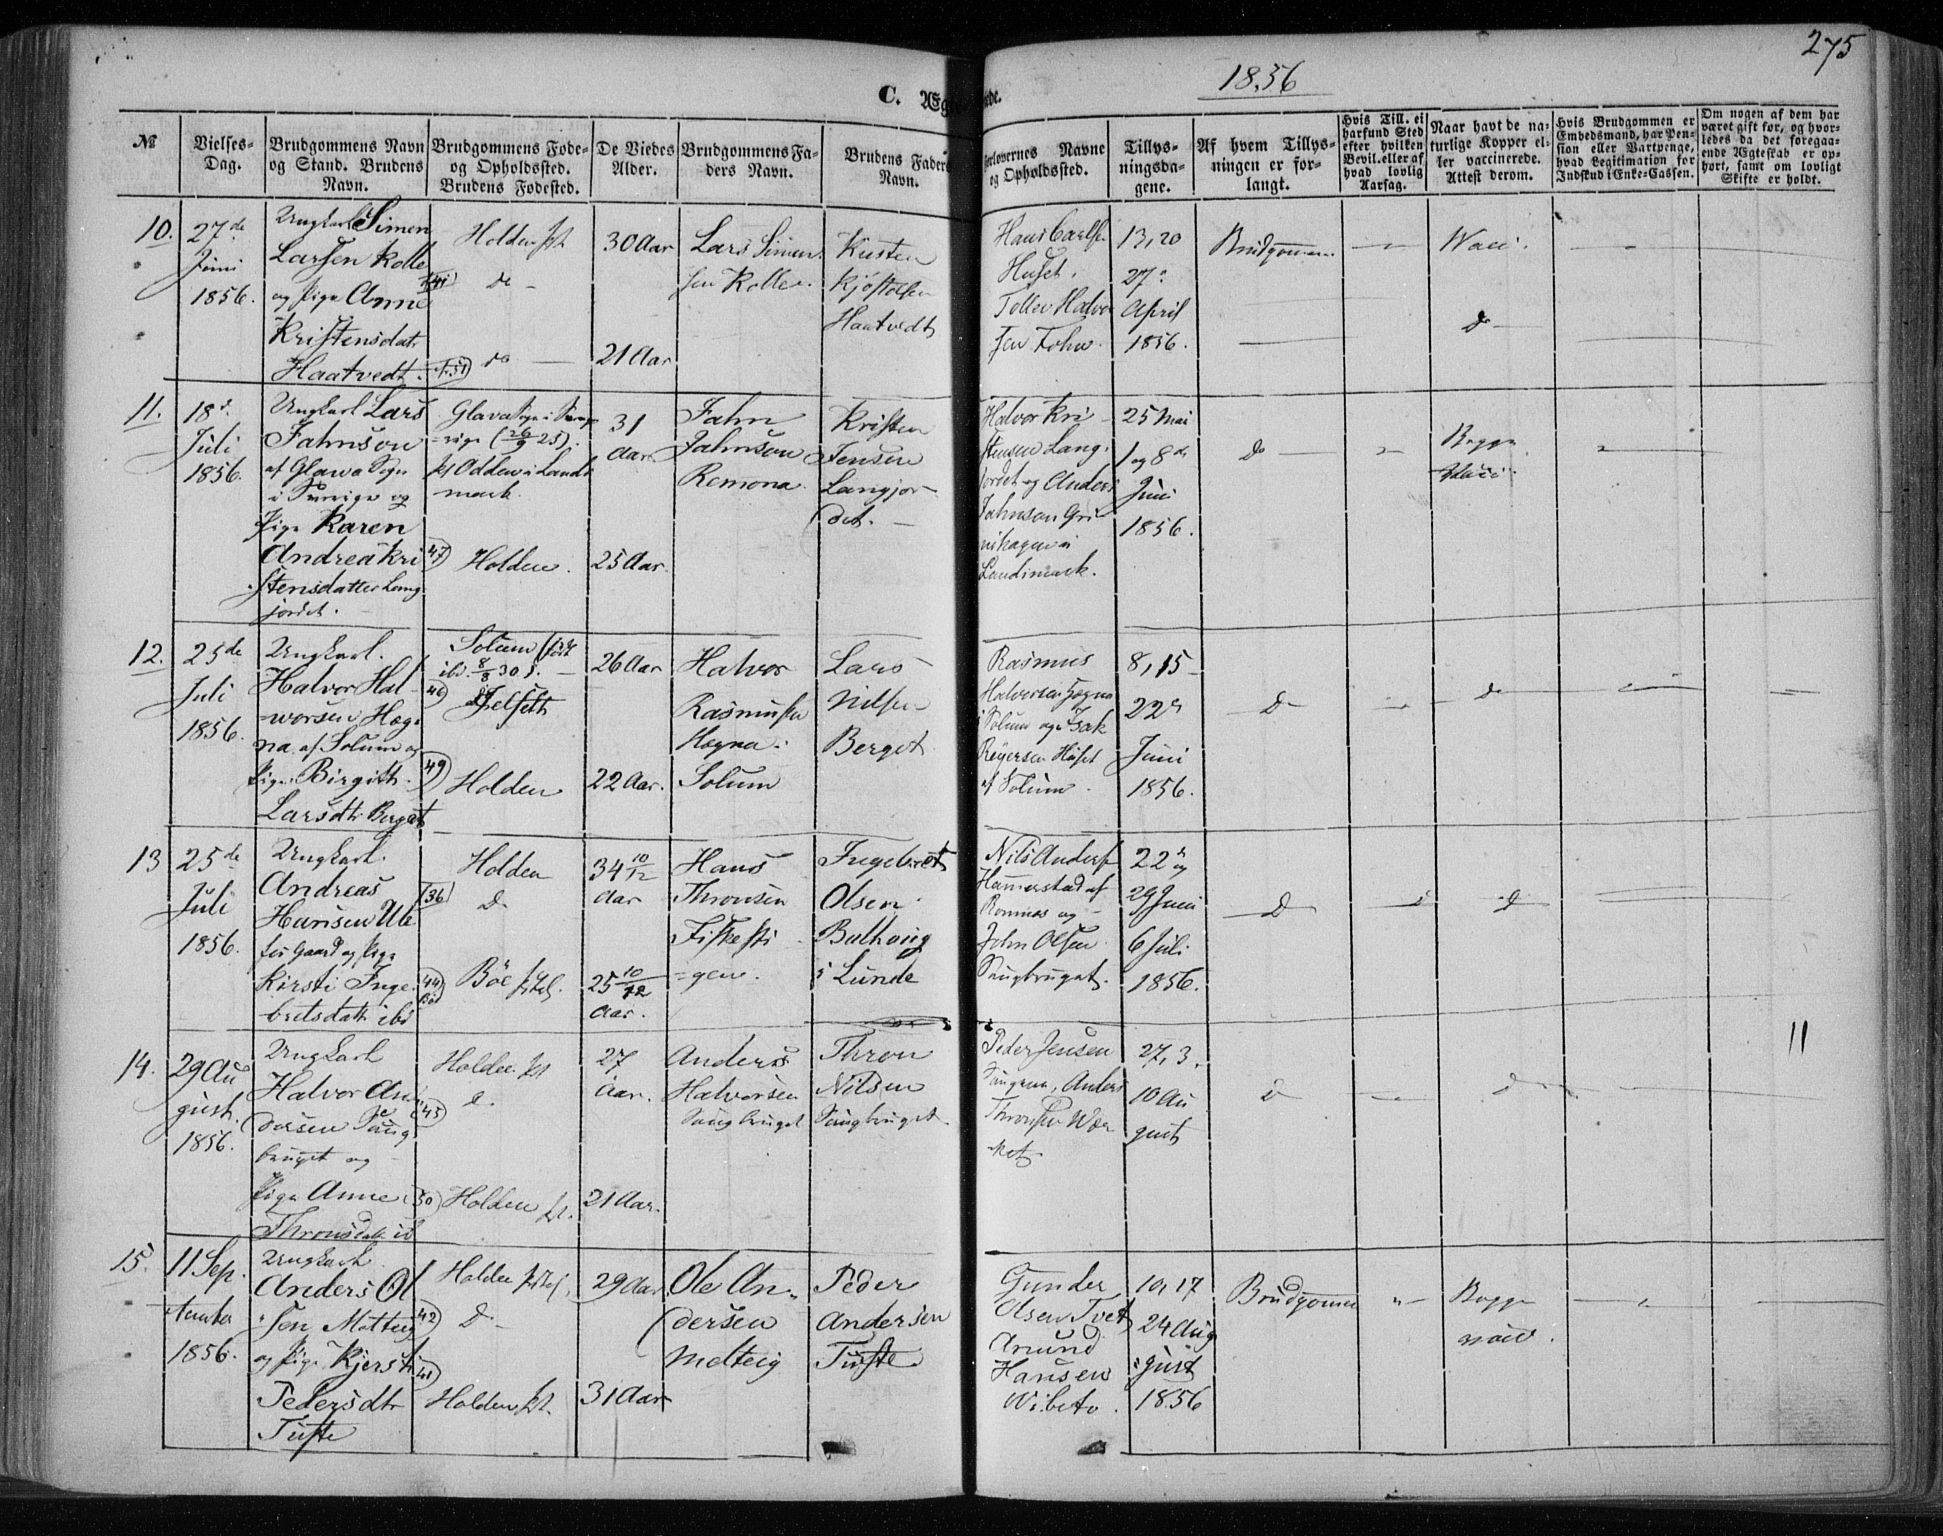 275
1856
C. Ægte
de.
№
Vielses-
Dag.
Brudgommens Navn
og Stand. Brudens
Navn.
Brudgommens Føde-
og Opholdssted.
Brudens Fødested.
De Viedes
Alder.
Brudgommens Fa-
ders Navn.
Brudens Faders
Navn.
orlovernes Navne
og Opholdssted.
Tillys-
ningsda-
gene.
Af hvem Tillys-
ningen er for-
langt.
Hvis Till. ei
harfund Sted
efter hvilken
Bevil. eller af
hvad lovlig
Aarsag.
Naar havt de na-
turlige Kopper el-
ler vaccinerede.
Attest derom.
Hvis Brudgommen er
Embedsmand, har Pen-
sion eller Vartpenge,
hvad Legitimation for
Indskud i Enke-Cassen.
Om nogen af dem har
været gift før, og hvor-
ledes da det foregaa-
ende Ægteskab er op-
hørt, samt om lovligt
Skifte er holdt.
10.
27de
Juni
1856.
Ungkarl Simen
Larsen Kolle
og Pige Anne
Kristensdatr
Haatvedt.
Holden
do
do
30 Aar
21 Aar
Lars Simen
sen Kolle.
Kisten
Kjøstolsen
Haatvedt
Hans Carlse
Huset.
Tollev Halvor
sen
13, 20
27de
April
1856.
Brudgommen
Vacc.
do
11.
18de
Juli
1856.
Ungkarl Lars
Jahnson
af Glawa Sogn
i Sverige og
Pige Karen
Andrea Kri
stensdatter Lang
jordet.
47
Glava Sogn i Sve
rige (26/9 25).
Odden i Lands
mark.
Holden.
31
Aar
25 Aar.
Jahn
Jahnson
Remona
Kristen
Jensen
Langjor-
det.
Halvor Kri-
stensen Lang
jordet og Anders
Jahnson Gri
Landsmark.
25 Mai
1 og 8de
Juni
1856.
do
Begge
Vacc.
12.
25de
Juli
1856.
Ungkarl.
Halvor Hal-
worsen Hæg
na af Solum og
Pige Birgith
Larsdtr Berget
46
49
Solum født
ibd. 8/8 30
Holden
26 Aar
22 Aar.
Halvor
Rasmussen
Hægna
Solum
Lars
Nilsen
Berget
Rasmus
Halvorsen Hægna
Solum og Isak
Reyersen Huset
af Solum.
8, 15
22de
Juni
1856.
do
do
13
25de
Juli
1856.
Ungkarl.
Andreas
Hansen Ule
fos Gaard og Pige
Kirsti Inge-
bretsdatr ibd
36
44
Bøe
Holden
do
Bøe
34 10/12
Aar
25 10/12
Aar.
Hans
Thronsen
Fiskesti
gen.
Ingebret
Olsen
Bolhaug
i Lunde
Nils Anders
Hammerstad af
Romnes og
John Olsen
Saugbruget.
22de og
29 Juni
6 Juli
1856.
do
do
14.
29 Au
gust.
1856.
Ungkarl
Halvor An
dersen Saug
bruget og
Pige Anne
Thronsdatr ib
45
50
Holden
do.
Holden
27
Aar.
21 Aar.
Anders
Halvorsen
Saugbruget
Thron
Nilsen
Saugbruget.
Peder Jensen
Anders
Thronsen
27, 3.
10 Au
gust
do
do
11
15.
11 Sep.
tember
1856.
Ungkarl.
Anders Ol
sen Molteig
og Pige Kjersti
Pedersdtr
Tufte
42
41
Holden
do
Holden
29 Aar
31 Aar
Ole An-
dersen
Molteig
Peder
Andersen
Tufte
Gunder
Olsen Tvet
Amund
Hansen
Wibeto.
10, 17
24 Aug
gust
1856
Brudgommen
Begge
vacc.